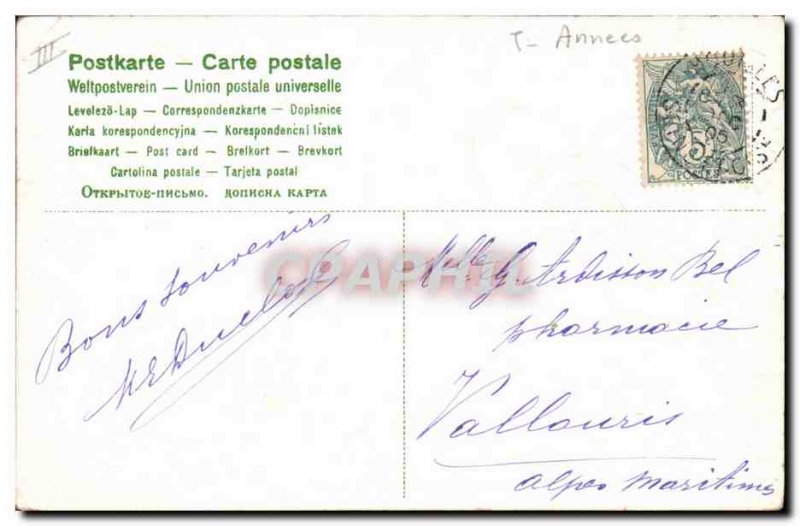 III
T- Annees
Postkarte — Carte postale
Weltpostverein — Union postale universelle
Levelező-Lap — Correspondenzkarte — Dopisnice
Karta korespondencyjna — Korespondenční lístek
Briefkaart — Post card — Brefkort — Brevkort
Cartolina postale — Tarjeta postal
Открытое-письмо. дописна карта
5
POSTES
CPAPHIL
Bons souvenirs
Melle G Ardisson Bel
pharmacie
Vallauris
alpes maritimes